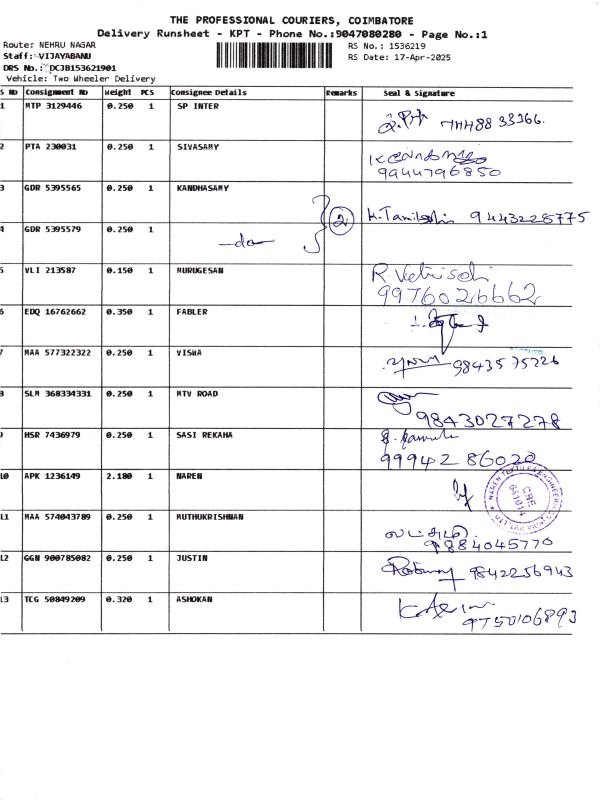 THE PROFESSIONAL COURIERS, COIMBATORE
Delivery Runsheet - KPT - Phone No.:9047080280 - Page No.:1
Route: NEHRU NAGAR RS No.: 1536219
Staff: VIJAYABANU RS Date: 17-Apr-2025
DRS No.: DCJB153621901
Vehicle: Two Wheeler Delivery
S No Consignment No Weight PCS Consignee Details Remarks Seal & Signature
1 MTP 3129446 0.250 1 SP INTER
2 PTA 230031 0.250 1 SIVASAMY
9944796850
3 GDR 5395565 0.250 1 KANDHASAMY
2 K. Tamilselvi 9443228775
4 GDR 5395579 0.250 1
-do-
5 VLI 213587 0.150 1 MURUGESAN R. Vetriselvi
9976026662
6 EDQ 16762662 0.350 1 FABLER
7 MAA 577322322 0.250 1 VISWA 9843575226
8 SLM 368334331 0.250 1 MTV ROAD
9843027278
9 HSR 7436979 0.250 1 SASI REKAHA
99942 86020
10 APK 1236149 2.180 1 NAREN
CBE
641014
11 MAA 574043789 0.250 1 MUTHUKRISHNAN
9884045770
12 GGN 900785082 0.250 1 JUSTIN
9842256943
13 TCG 50849209 0.320 1 ASHOKAN
9750106893